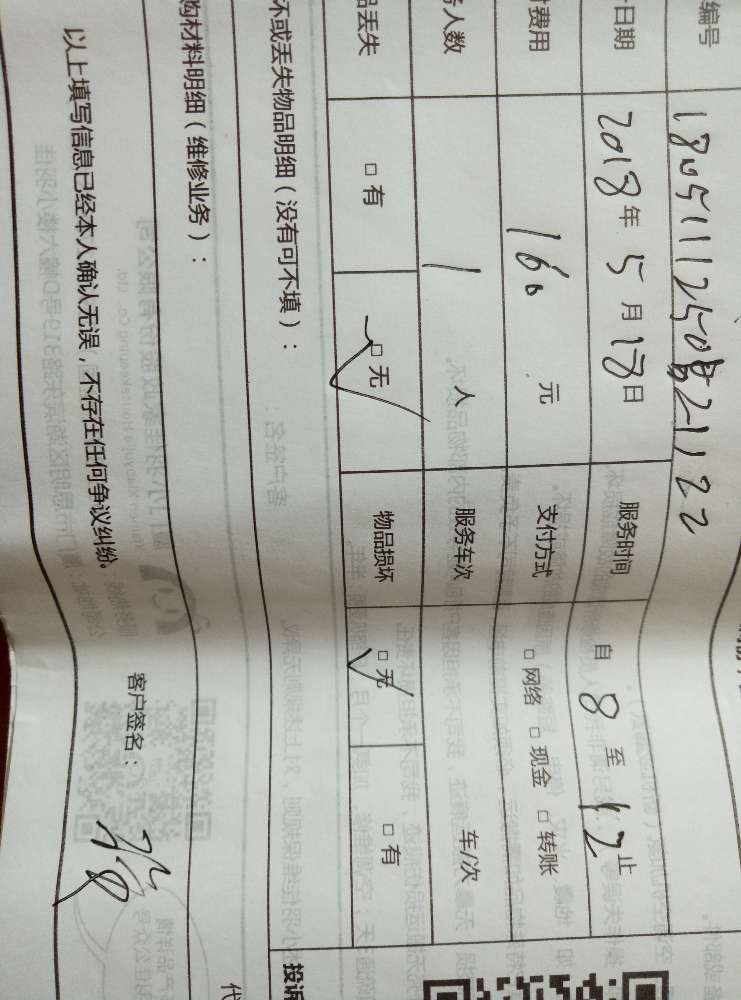 编号 
日期 2018年5月18日 服务时间 自8至12止
费用 160元 支付方式 □网络 □现金 □转账
人数 1人 服务车次 车/次
品丢失 □有 □无 物品损坏 □无 □有
坏或丢失物品明细(没有可不填):
购材料明细(维修业务):
以上填写信息已经本人确认无误,不存在任何争议纠纷。
客户签名:
投诉
代